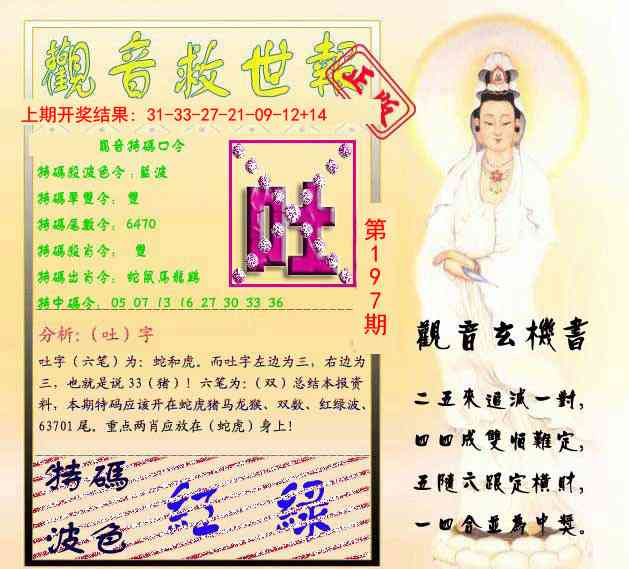 觀音救世報
正版
上期开奖结果: 31-33-27-21-09-12+14
觀音特碼口令
特碼殺波色令:藍波
特碼單雙令: 雙
特碼尾數令: 6470
特碼殺肖令: 雙
特碼出肖令: 蛇鼠馬龍鷄
特中碼令: 05 07 13 16 27 30 33 36
吐
第197期
分析:(吐)字
吐字(六笔)为: 蛇和虎。而吐字左边为三, 右边为
三, 也就是说 33(猪)! 六笔为:(双)总结本报资
料, 本期特码应该开在蛇虎猪马龙猴、双数、红绿波、
63701 尾。重点两肖应放在(蛇虎)身上!
特碼
波色
紅 綠
觀音玄機書
二五來追减一對,
四四成雙恒難定,
五隨六跟定橫財,
一四合並爲中獎。